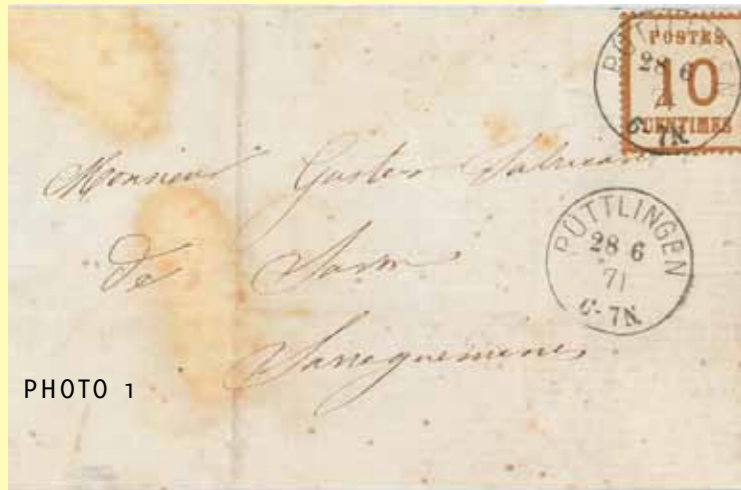 POSTES
10
CENTIMES
28 6
71
6-7N.
Monsieur
de
Sarreguemines
PÜTTLINGEN
28 6
71
6-7N.
PHOTO 1